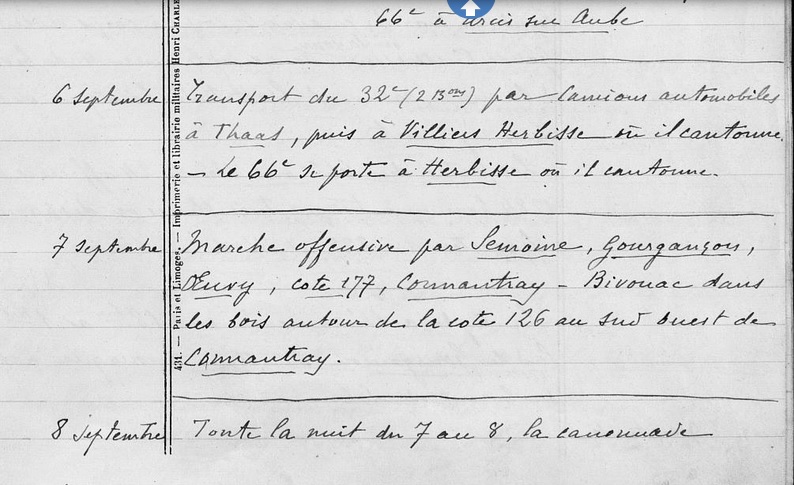 66e à Arcis sur Aube
6 septembre Transport du 32e (2 Bons) par camions automobiles
à Thaas, puis à Villiers Herbisse où il cantonne.
— Le 66e se porte à Herbisse où il cantonne.
7 septembre Marche offensive par Semoine, Gourgançon,
Œuvy, cote 177, Connantray - Bivouac dans
les bois autour de la cote 126 au sud ouest de
Connantray.
8 septembre Toute la nuit du 7 au 8, la canonnade
431. — Paris et Limoges. — Imprimerie et librairie militaires Henri CHARLE